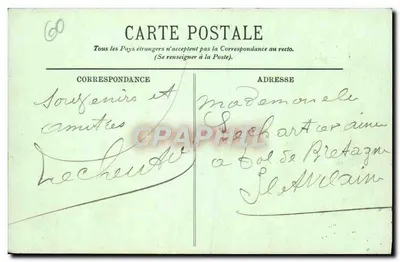 60
CARTE POSTALE
Tous les Pays étrangers n'acceptent pas la Correspondance au recto.
(Se renseigner à la Poste).
CORRESPONDANCE
ADRESSE
Souvenirs et
amities
Mademoisele
Lechartier ainée
a Dol de Bretagne
CPARAMA